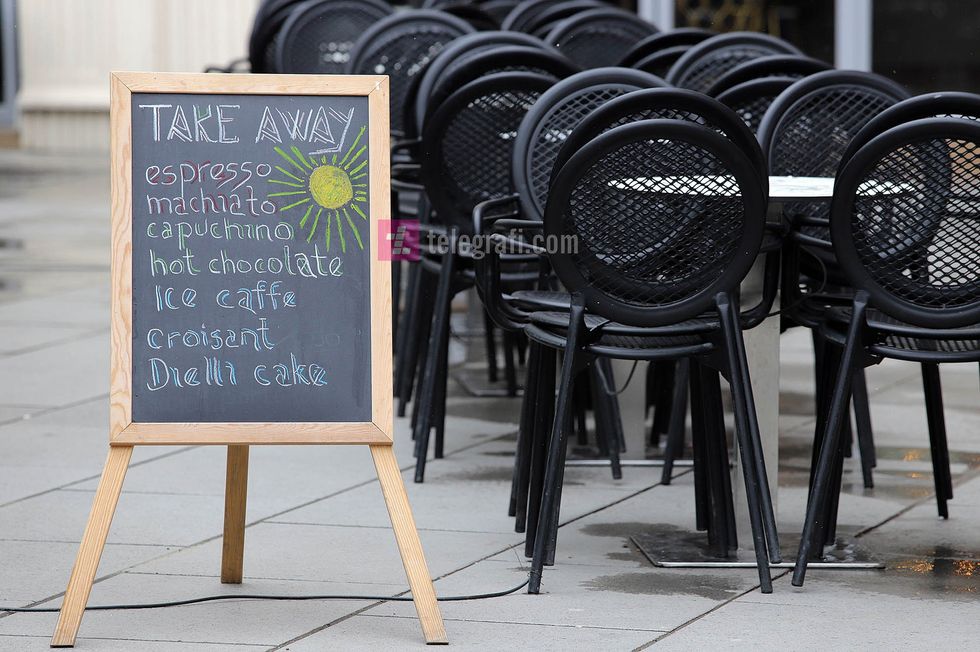 TAKE AWAY
espresso
machiato
capuchino
hot chocolate
Ice caffe
croisant
Diella cake
telegrafi.com